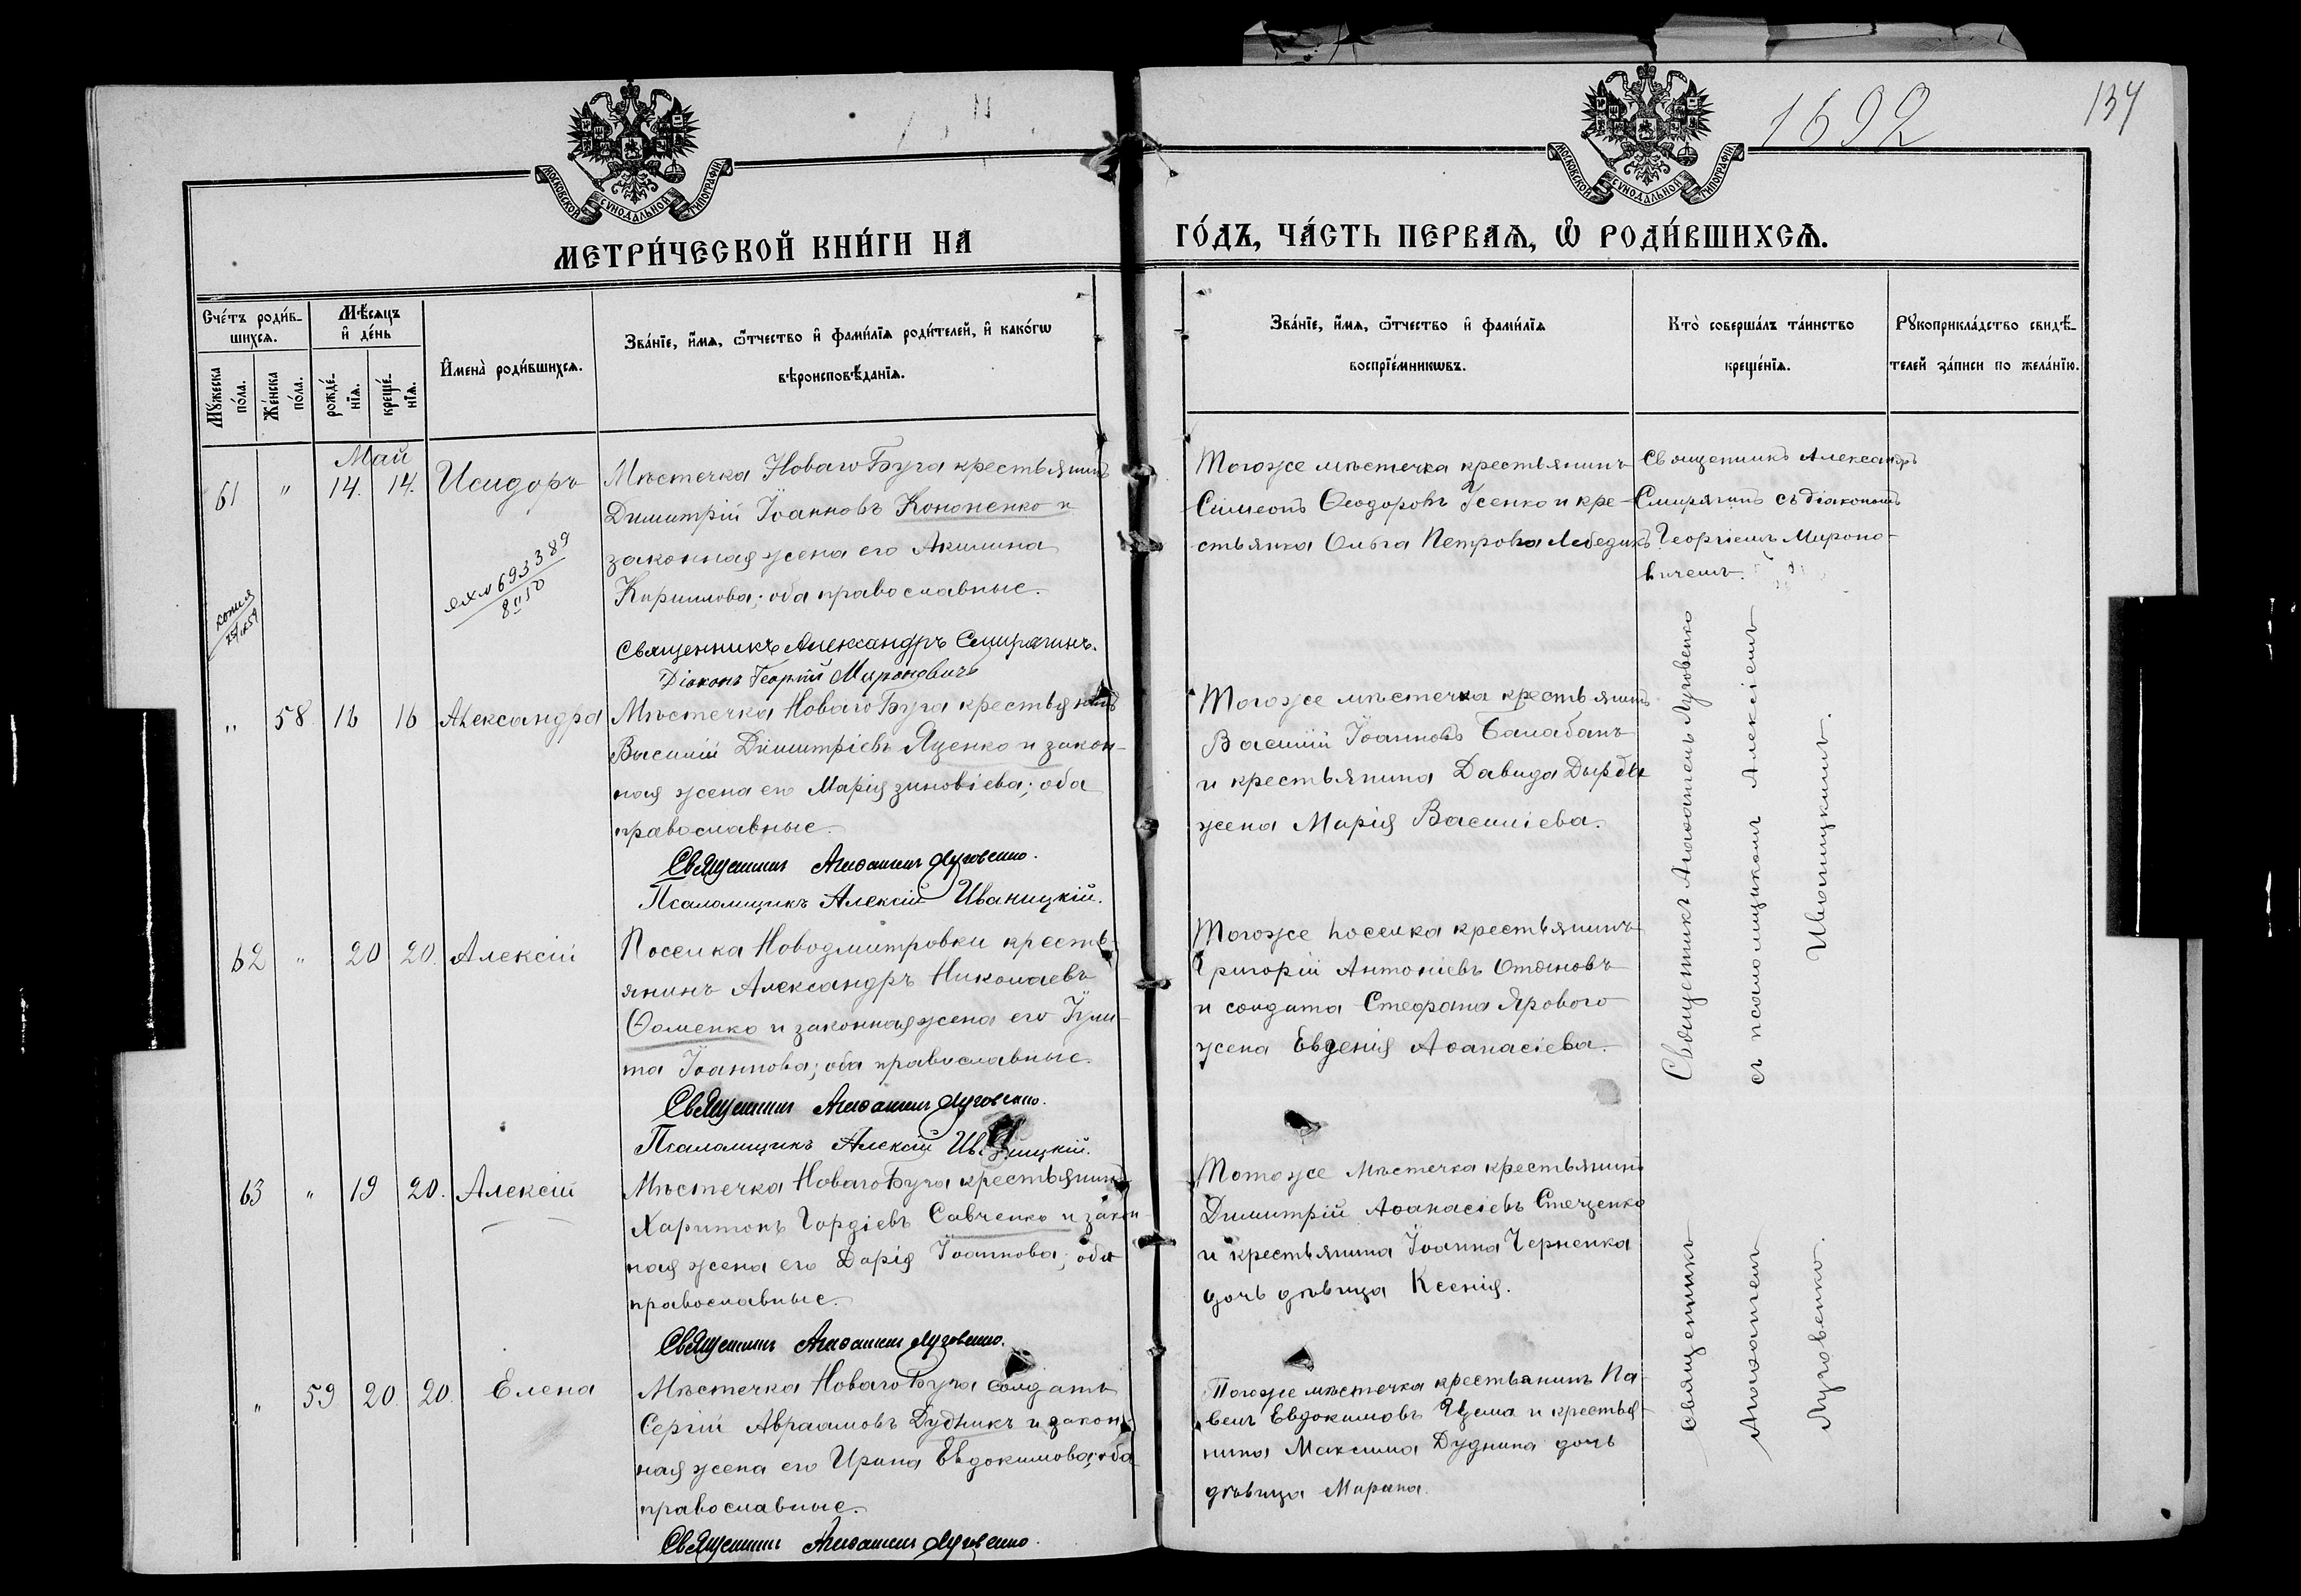 1692
134
МОСКОВСКОЙ СѴНОДАЛЬНОЙ ТИПОГРАФІИ
МОСКОВСКОЙ СѴНОДАЛЬНОЙ ТИПОГРАФІИ
МЕТРИ́ЧЕСКОЙ КНИ́ГИ НА
ГО́ДЪ, ЧА́СТЬ ПЕРВАѦ, Ѽ РОДИ́ВШИХСѦ.
Сче́тъ роди́в-
шихсѧ.
Мꙋ́жеска по́ла.
Же́нска по́ла.
Мѣ́сѧцъ
и҆ де́нь
рожде́-
нїѧ.
креще́-
нїѧ.
И҆мена̀ роди́вшихсѧ.
Зва́нїе, и҆́мѧ, ѻ҆́тчество и҆ фами́лїѧ роди́телей, и҆ како́гѡ
вѣроисповѣ́данїѧ.
Зва́нїе, и҆́мѧ, ѻ҆́тчество и҆ фами́лїѧ
воспрїе́мникѡвъ.
Кто̀ соверша́лъ та́инство
креще́нїѧ.
Рꙋкоприкла́дство свидѣ́-
телей за́писи по жела́нїю.
Май
61 " 14. 14. Исидоръ
Мѣстечка Новаго Буга крестьянинъ
Димитрій Іоанновъ Кононенко и
законная жена его Акилина
Кириллова; оба православные.
693389
копия
Священникъ Александръ Смирягинъ.
Діаконъ Георгій Мироновичъ
Тогоже мѣстечка крестьянинъ
Сімеонъ Ѳеодоровъ Усенко и кре-
стьянка Ольга Петрова Лебедикъ
Священникъ Александръ
Смирягинъ съ діакономъ
Георгіемъ Мироно-
вичемъ.
" 58 16 16 Александра
Мѣстечка Новаго Буга крестьянинъ
Василій Димитріевъ Яценко и закон-
ная жена его Марія Зиновіева; оба
православные.
Священникъ Агаѳангелъ Луговенко.
Псаломщикъ Алексій Иваницкій.
Тогоже мѣстечка крестьянинъ
Василій Іоанновъ Балабанъ
и крестьянина Давида Дырды
жена Марія Василіева.
Священникъ Агаѳангелъ Луговенко
съ псаломщикомъ Алексіемъ
Иваницкимъ.
62 " 20 20. Алексій
Поселка Новодмитровки кресть-
янинъ Александръ Николаевъ
Ѳоменко и законная жена его Іули-
та Іоаннова; оба православные.
Священникъ Агаѳангелъ Луговенко.
Псаломщикъ Алексій Иваницкій.
Тогоже поселка крестьянинъ
Григорій Антоніевъ
и солдата Стефана Ярового
жена Евгенія Аѳанасіева.
63 " 19 20. Алексій
Мѣстечка Новаго Буга крестьянинъ
Харитонъ Гордіевъ Савченко и закон-
ная жена его Дарія Іоаннова; оба
православные.
Священникъ Агаѳангелъ Луговенко.
Тогоже мѣстечка крестьянинъ
Димитрій Аѳанасіевъ Стеценко
и крестьянина Іоанна Черненка
дочь дѣвица Ксенія.
Священникъ
Агаѳангелъ
Луговенко.
" 59 20. 20. Елена
Мѣстечка Новаго Буга солдатъ
Сергій Авраамовъ Дудникъ и закон-
ная жена его Ирина Евдокимова; оба
православные.
Священникъ Агаѳангелъ Луговенко.
Тогоже мѣстечка крестьянинъ Па-
велъ Евдокимовъ и крестья-
нина Максима Дудника дочь
дѣвица